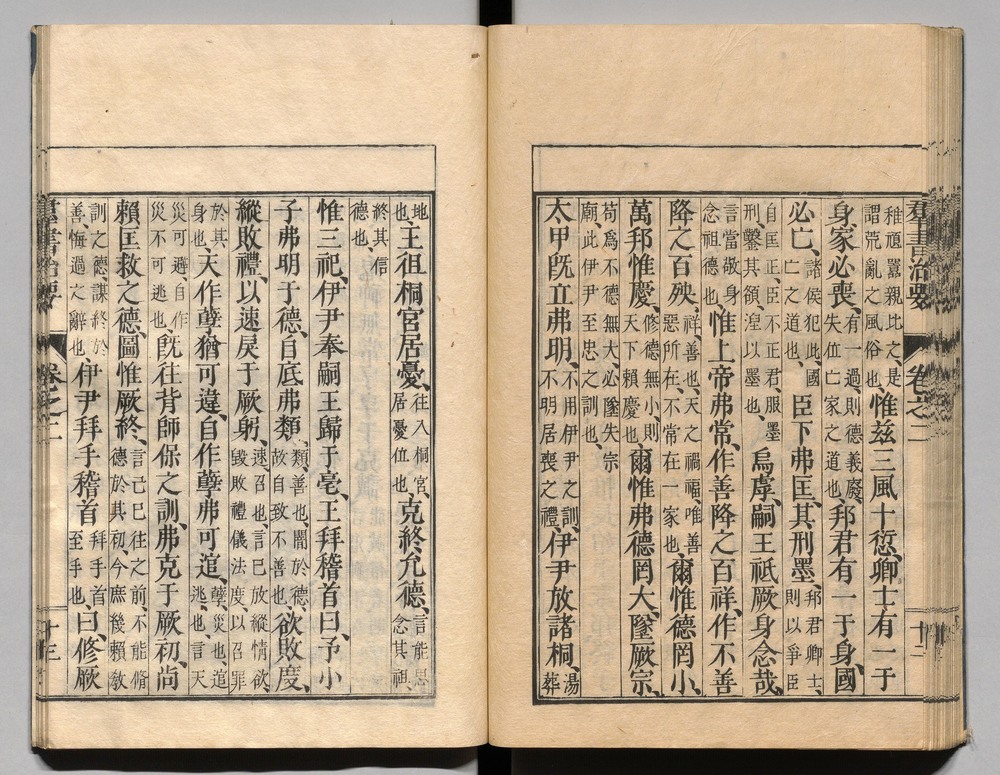 羣書治要 卷之二 十二
稚頑嚚親比之、是謂荒亂之風俗也、惟茲三風十愆、卿士有一于
身、家必喪、有一過、則德義廢、失位亡家之道也、邦君有一于身、國
必亡、諸侯犯此、國亡之道也、臣下弗匡、其刑墨、邦君卿士、則以爭臣
自匡正、臣不正君、服墨刑、鑿其額、涅以墨也、烏虖、嗣王祇厥身念哉、
言當敬身念祖德也、惟上帝弗常、作善降之百祥、作不善
降之百殃、祥、善也、天之禍福、唯善惡所在、不常在一家也、爾惟德罔小、
萬邦惟慶、修德無小、則天下賴慶也、爾惟弗德罔大、墜厥宗、
苟爲不德無大、必墜失宗廟、此伊尹至忠之訓也、
太甲旣立弗明、不用伊尹之訓、不明居喪之禮、伊尹放諸桐、湯葬
地也、王徂桐宮居憂、往入桐宮、居憂位也、克終允德、言能思念其祖、
終其信德也、
惟三祀、伊尹奉嗣王歸于亳、王拜稽首曰、予小
子弗明于德、自底弗類、類、善也、闇於德、故自致不善也、欲敗度、
縱敗禮、以速戾于厥躬、速、召也、言已放縱情欲、毀敗禮儀法度、以召罪
於其身也、天作孼猶可違、自作孼弗可逭、孼、災也、逭、逃也、言天
災可避、自作災不可逃也、旣往背師保之訓、弗克于厥初、尚
賴匡救之德、圖惟厥終、言己已往之前、不能脩德於其初、今庶幾賴敎
訓之德、謀終於善、悔過之辭也、伊尹拜手稽首、拜手、首至手也、曰、修厥
羣書治要 卷之二 十三